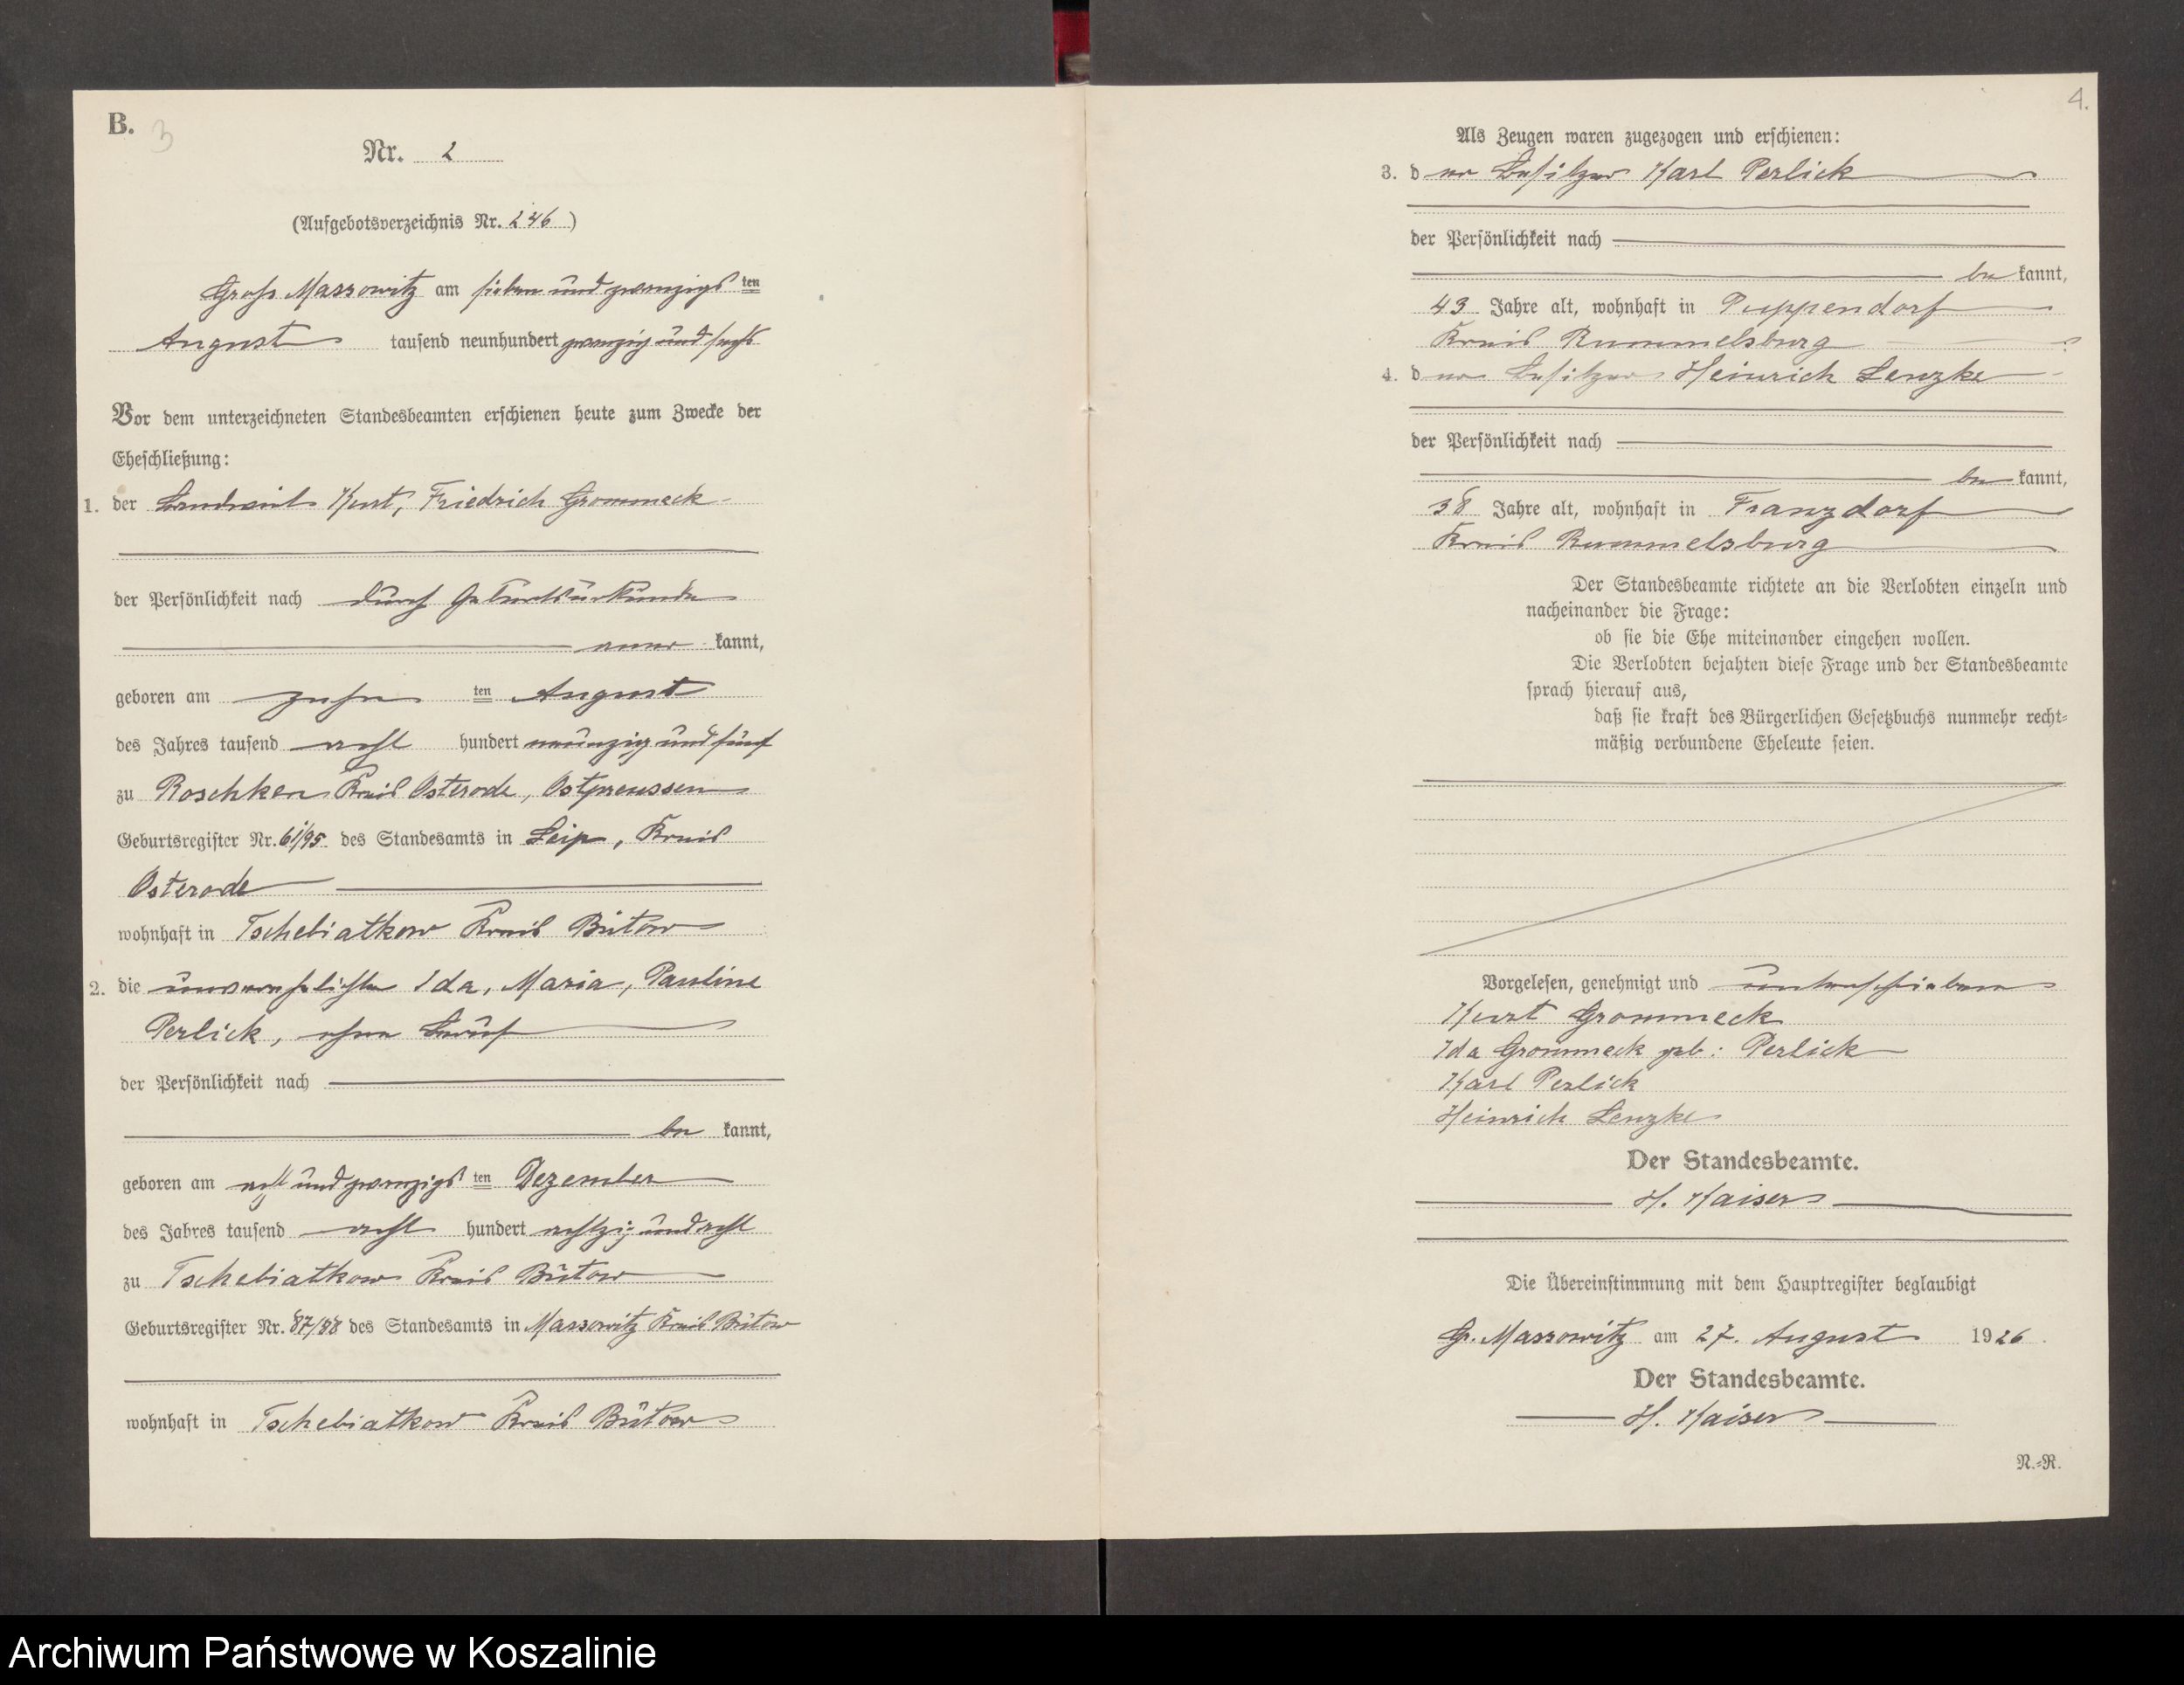 B.
3
Nr. 2
(Aufgebotsverzeichnis Nr. 246)
Gross Massowitz am sieben und zwanzigsten
August tausend neunhundert zwanzig und sechs
Vor dem unterzeichneten Standesbeamten erschienen heute zum Zwecke der
Eheschließung:
1. der Landwirt Kurt, Friedrich Grommeck
der Persönlichkeit nach durch Geburtsurkunde
aner kannt,
geboren am zehn ten August
des Jahres tausend acht hundert neunzig und fünf
zu Roschken Kreis Osterode, Ostpreussen
Geburtsregister Nr. 61/95 des Standesamts in Leip, Kreis
Osterode
wohnhaft in Tschebiatkow Kreis Bütow
2. die unverehelichte Ida, Maria, Pauline
Perlick, ohne Beruf
der Persönlichkeit nach
be kannt,
geboren am acht und zwanzigs ten Dezember
des Jahres tausend acht hundert achtzig und acht
zu Tschebiatkow Kreis Bütow
Geburtsregister Nr. 87/88 des Standesamts in Massowitz Kreis Bütow
wohnhaft in Tschebiatkow Kreis Bütow
4.
Als Zeugen waren zugezogen und erschienen:
3. d er Besitzer Karl Perlick
der Persönlichkeit nach
be kannt,
49 Jahre alt, wohnhaft in Puppendorf
Kreis Rummelsburg
4. d er Besitzer Heinrich Lenzke
der Persönlichkeit nach
be kannt,
38 Jahre alt, wohnhaft in Franzdorf
Kreis Rummelsburg
Der Standesbeamte richtete an die Verlobten einzeln und
nacheinander die Frage:
ob sie die Ehe miteinander eingehen wollen.
Die Verlobten bejahten diese Frage und der Standesbeamte
sprach hierauf aus,
daß sie kraft des Bürgerlichen Gesetzbuchs nunmehr recht-
mäßig verbundene Eheleute seien.
Vorgelesen, genehmigt und unterschrieben
Kurt Grommeck
Ida Grommeck geb: Perlick
Karl Perlick
Heinrich Lenzke
Der Standesbeamte.
H. Kaiser
Die Übereinstimmung mit dem Hauptregister beglaubigt
Gr. Massowitz am 27. August 1926
Der Standesbeamte.
H. Kaiser
N.-R.
Archiwum Państwowe w Koszalinie